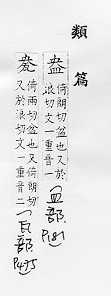 類篇
盎
倚朗切盆也又於
浪切文一重音一
(皿部
P181
㼜
倚兩切盆也又倚朗切
又於浪切文一重音二
(瓦部
P475